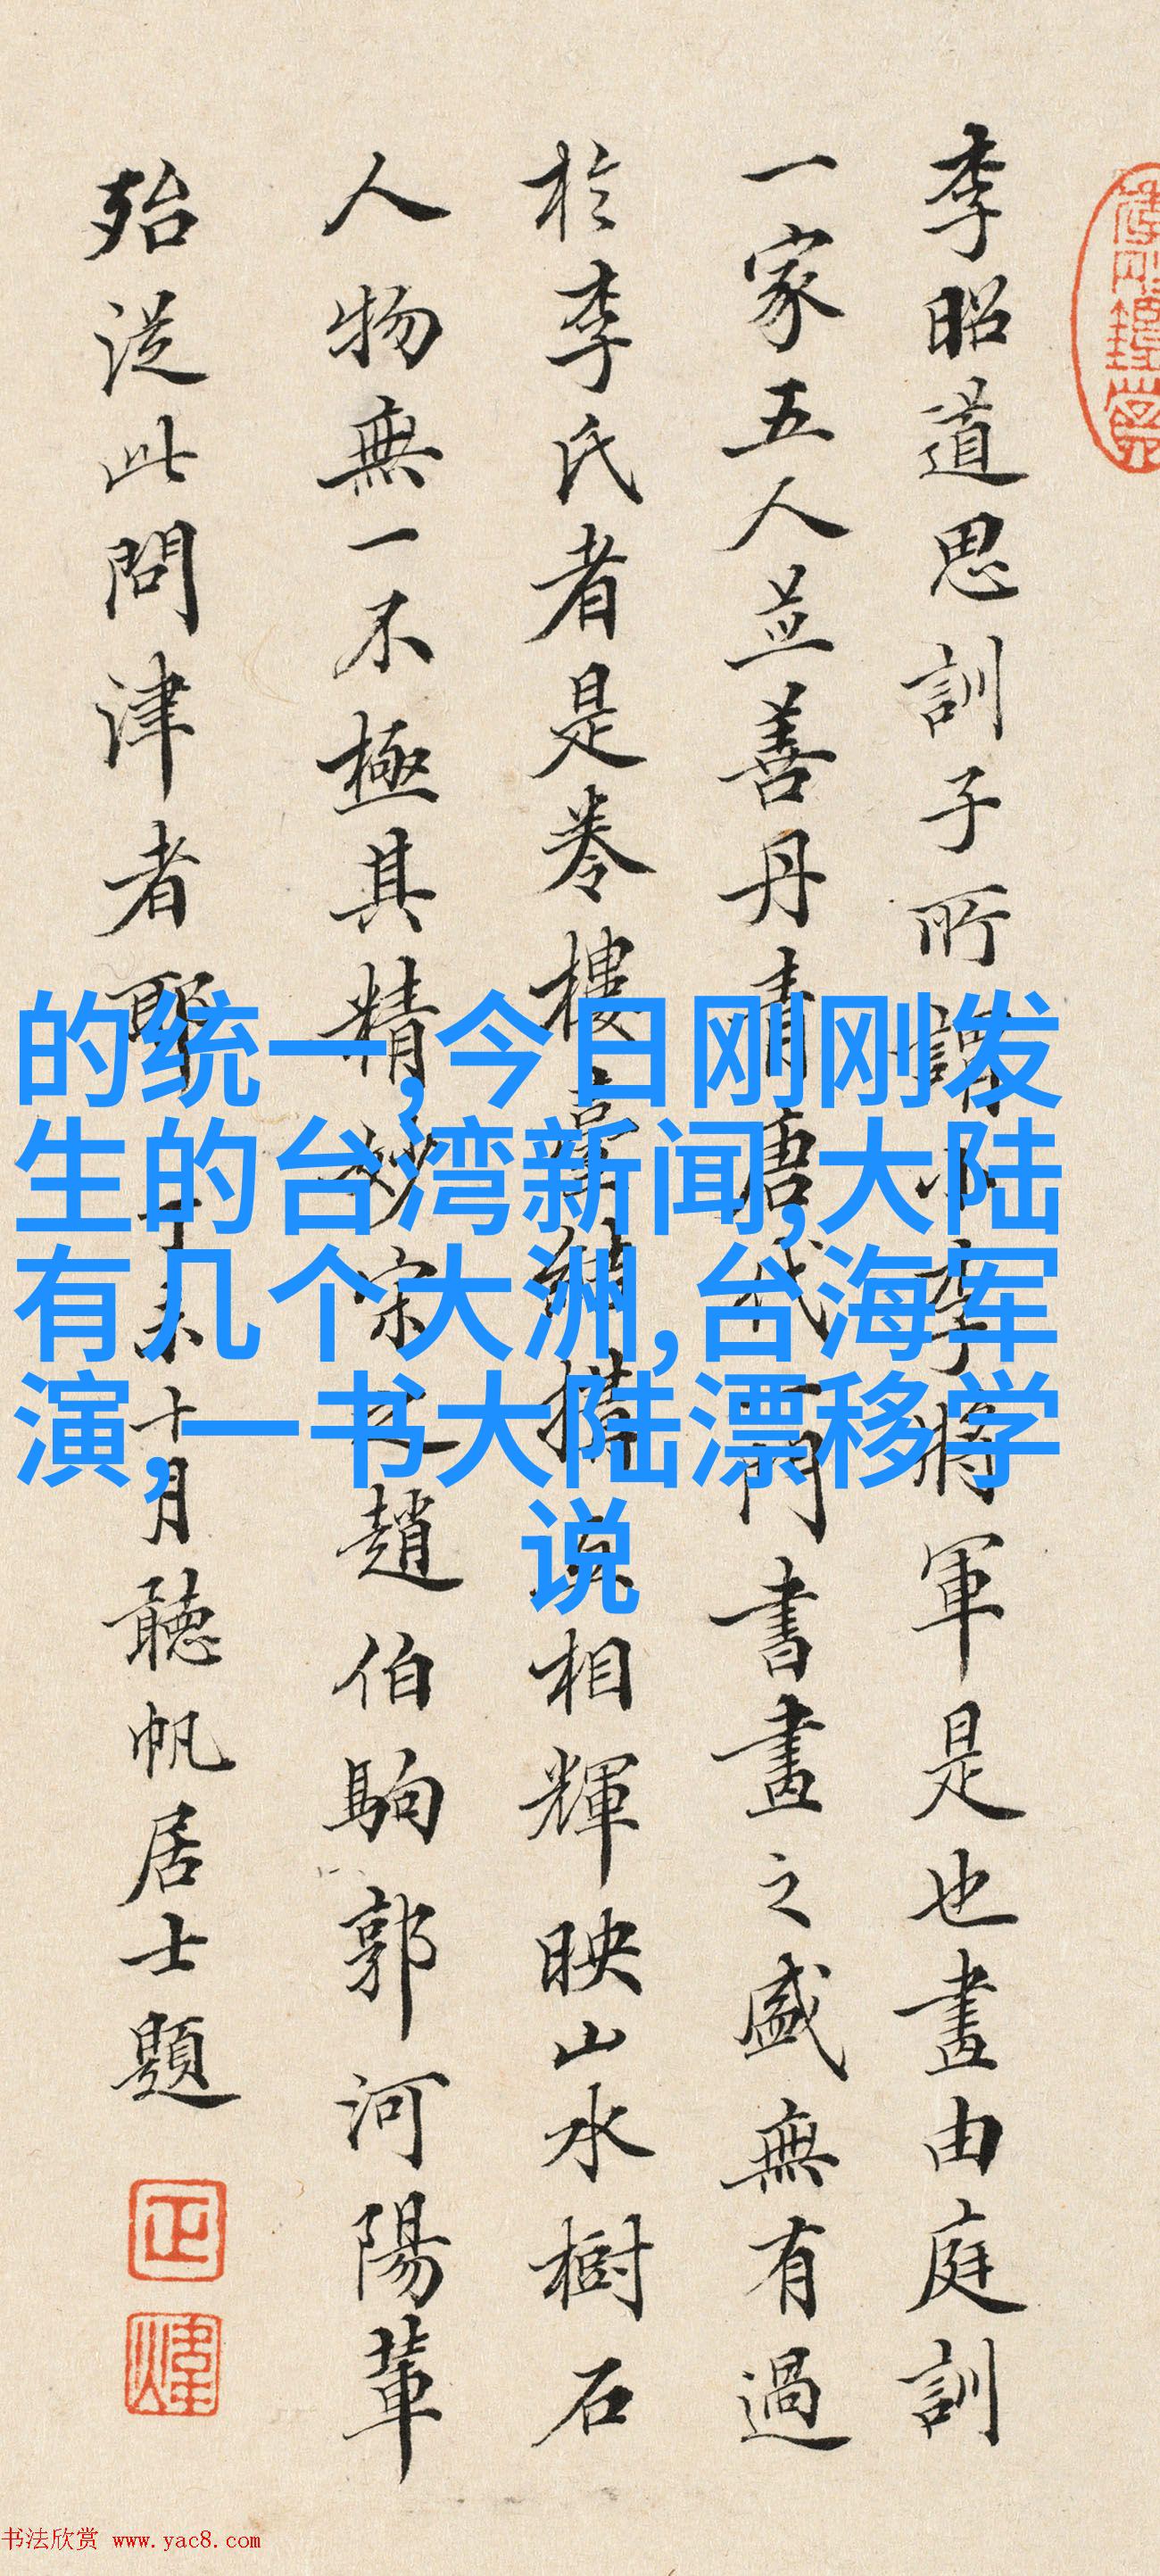 李昭道思訓子所謂小李將軍是也畫由庭訓
一家五人並善丹青唐代一門書畫之盛無有過
於李氏者是卷樓臺結構互相輝映山水樹石
人物無一不極其精妙宋之趙伯駒郭河陽輩
殆從此問津者耶丁未十月聽帆居士題
正
煒
的统一,今日刚刚发
生的台湾新闻,大陆
有几个大洲,台海军
演,一书大陆漂移学
说
书法欣赏 www.yac8.com